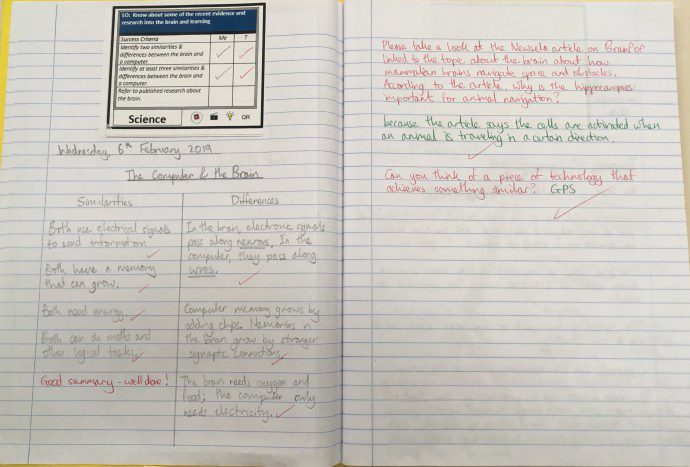 LO: Know about some of the recent evidence and
research into the brain and learning
Success Criteria Me T
Identify two similarities &
differences between the brain and
a computer.
Identify at least three similarities &
differences between the brain and
a computer
Refer to published research about
the brain.
Science DR
Wednesday, 6th February 2019
The Computer & the Brain
Similarities
Both use electrical signals
to send information
Both have a memory
that can grow.
Both need energy.
Both can do maths and
other logical tasks.
Good summary - well done!
Differences
In the brain, electronic signals
pass along neurons. In the
computer, they pass along
wires.
Computer memory grows by
adding chips. Memories in
the brain grow by stronger
synaptic connections.
The brain needs oxygen and
food; the computer only
needs electricity.
Please take a look at the Newsela article on BrainPOP
linked to the topic about the brain about how
mammalian brains navigate space and obstacles.
According to the article, why is the hippocampus
important for animal navigation?
because the article says the cells are activated when
an animal is traveling in a certain direction.
Can you think of a piece of technology that
achieves something similar? GPS